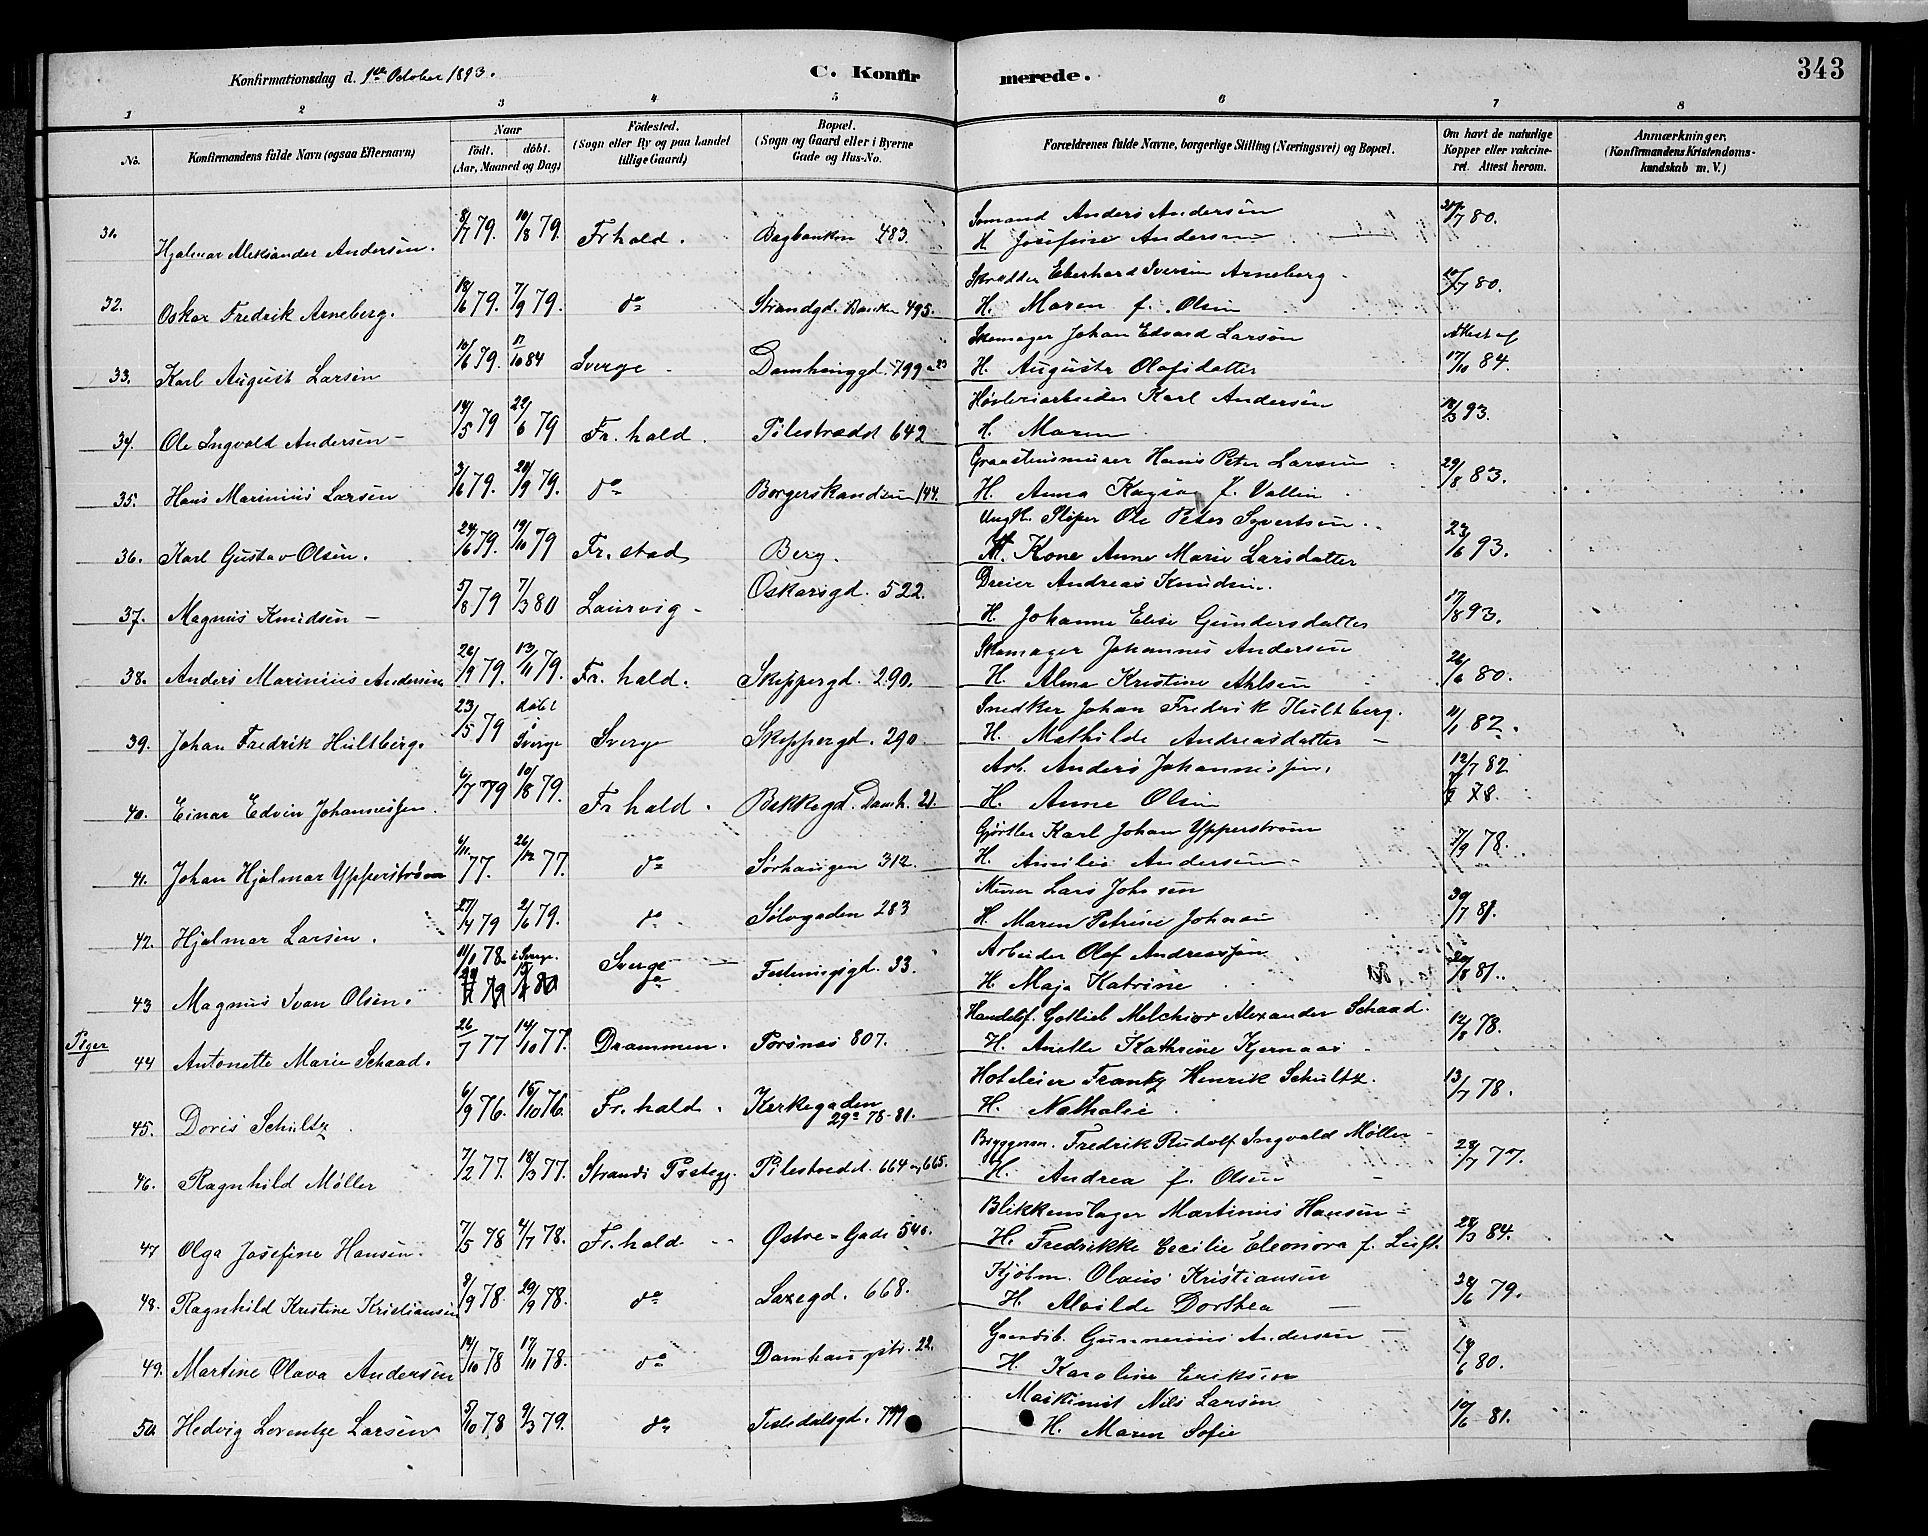 Konfirmationsdag d. 1ste October 1893.
C. Konfirmerede.
343
1 2 3 4 5 6 7 8
No.
Konfirmandens fulde Navn (ogsaa Efternavn)
Naar
födt. döbt.
(Aar, Maaned og Dag)
Födested.
(Sogn eller By og paa Landet tillige Gaard)
Bopæl.
(Sogn og Gaard eller i Byerne Gade og Hus-No.
Forældrenes fulde Navne, borgerlige Stilling (Næringsvei) og Bopæl.
Om havt de naturlige Kopper eller vakcineret. Attest herom.
Anmærkninger.
(Konfirmandens Kristendomskundskab m. V.)
31. Hjalmar Aleksander Andersen. 8/7 79. 10/8 79. Frhald. Bagbanken 483. Sømand Anders Andersen
H. Josefine Andersen /7 80.
32. Oskar Fredrik Arneberg. 18/6 79. 7/9 79. do Strandgd. Banken 495. Skrædder Eberhard Iversen Arneberg
H. Maren f. Olsen 20/7 80.
33. Karl August Larsen 10/6 79. 17/10 84 Sverge Damhauggd. 799 a 23 Skomager Johan Edvard Larsen
H. Augusta Olafsdatter Attest af 17/10 84.
34. Ole Ingvald Andersen 14/5 79 22/6 79 Fr. hald. Pilestrædet 642 Høvleriarbeider Karl Andersen
H. Maren 18/3 93.
35. Hans Marinius Larsen 3/6 79. 28/9 79. do Borgerskandsen 144. Graastensmurer Hans Peter Larsen
H. Anna Kajsa f. Vallin 29/8 83.
36. Karl Gustav Olsen. 24/6 79. 19/10 79 Fr. stad Berg. Ungk. Sliper Ole Peter Syvertsen
Kone Anne Marie Larsdatter 23/6 93.
37. Magnus Knudsen 5/8 79 7/3 80 Laurvig Oskarsgd. 522. Dreier Andreas Knudsen.
H. Johanne Elise Gundersdatter 17/8 93.
38. Anders Marinius Andersen 26/9 79. 13/11 79. Fr. hald. Skippergd. 290. Skomager Johannes Andersen
H. Alma Kristine Ahlsen 26/6 80.
39. Johan Fredrik Hultberg. 23/5 79 døbt i Sverge Sverge Skippergd. 290 Snedker Johan Fredrik Hultberg.
H. Mathilde Andreasdatter 11/1 82.
40. Einar Edvin Johannessen 6/7 79 10/8 79. Fr hald. Bakkegd. Damh. 21. Arb. Anders Johannessen,
H. Anne Olsen 12/7 82
41. Johan Hjalmar Ypperström 6/11 77. 26/12 77. do Sørhaugen 312. Gjørtler Karl Johan Ypperstrøm
H. Amilie Andersen 7/9 78.
42. Hjalmar Larsen. 27/4 79 2/6 79. do Sølvgaden 283 Murer Lars Johnsen
H. Maren Petrine Johnsen 30/7 81.
43 Magnus Ivar Olsen. 11/1 78. i Sverge. Sverge Festningsgd. 33. Arbeider Olof Andreassen
H. Maja Katrine 30/8 81.
Piger
44 Antonette Marie Schaad. 26/7 77 14/10 77. Drammen. Porsnes 807. Handelsf. Gotlieb Melchior Alexander Schaad.
H. Anette Kathrine Kjernaas 12/8 78.
45. Doris Schultz 6/9 76. 15/10 76. Fr. hald. Kirkegaden 29a 78-81. Hoteleier Frantz Henrik Schultz.
H. Nathalie 13/7 78.
46. Ragnhild Møller 7/2 77. 18/3 77. Strands Pstegj. Pilestrædet 664 og 665. Bryggerm. Fredrik Rudolf Ingvald Møller
H. Andrea f. Olsen 28/7 77.
47 Olga Josefine Hansen. 7/5 78 4/7 78. Fr. hald Østre-Gade 540. Blikkenslager Martinius Hansen
H. Fredrikke Cecilie Eleonora f. Luft. 28/3 84.
48. Ragnhild Kristine Kristiansen 8/9 78. 29/9 78. do Saxegd. 668. Kjøbm. Olaus Kristiansen
H. Alvilde Dorthea 28/6 79.
49. Martine Olava Andersen 14/10 78 17/11 78. do Damhaugstr. 22. Gaardsb. Gunnerius Andersen
H. Karoline Eriksen 19/6 80.
50. Hedvig Lorentze Larsen 5/10 78 9/3 79. do Tistedalsgd. 799 Maskinist Nils Larsen
H. Maren Sofie 10/6 81.